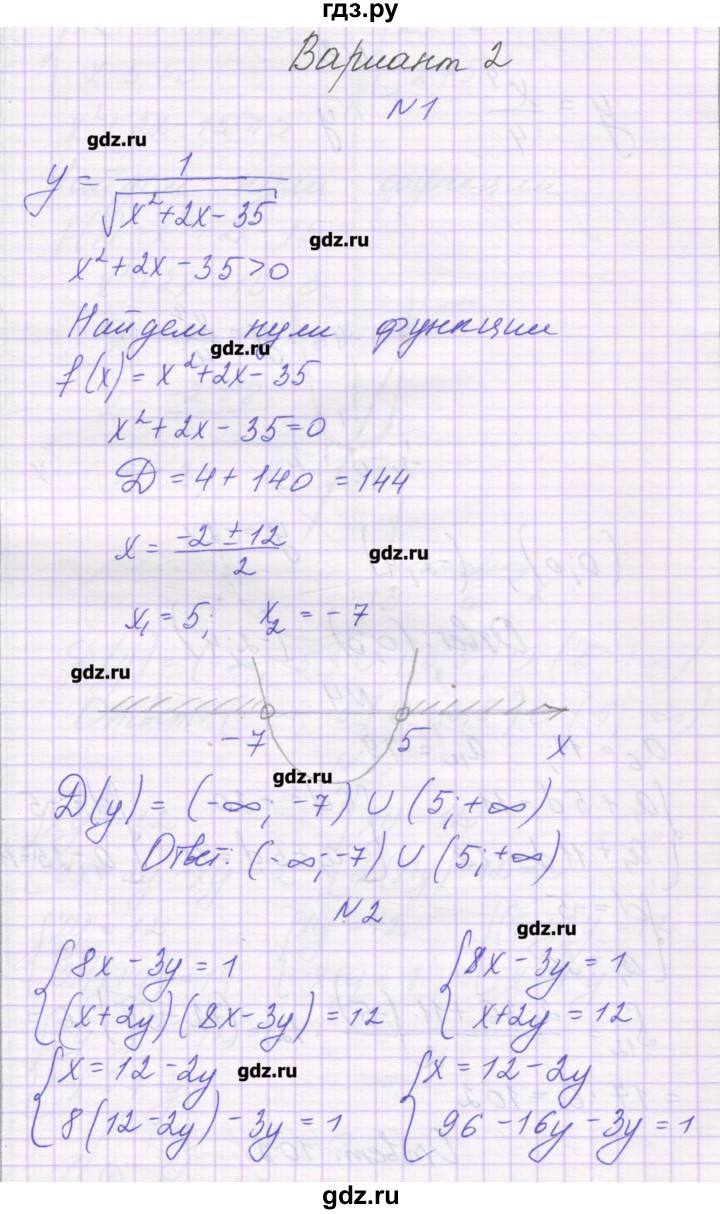 гдз.ру
Вариант 2
N1
gdz.ru
y = 1/√(x²+2x-35)
gdz.ru
x²+2x-35>0
Найдем нули функции
gdz.ru
f(x) = x²+2x-35
x²+2x-35=0
D = 4+140 = 144
x = (-2±12)/2
gdz.ru
x₁ = 5; x₂ = -7
gdz.ru
-7 5 x
gdz.ru
D(y) = (-∞; -7) ∪ (5; +∞)
Ответ: (-∞;-7) ∪ (5; +∞)
N2
gdz.ru
{8x-3y=1 {8x-3y=1
{(x+2y)(8x-3y)=12 {x+2y=12
{x=12-2y gdz.ru {x=12-2y
{8(12-2y)-3y=1 {96-16y-3y=1
gdz.ru